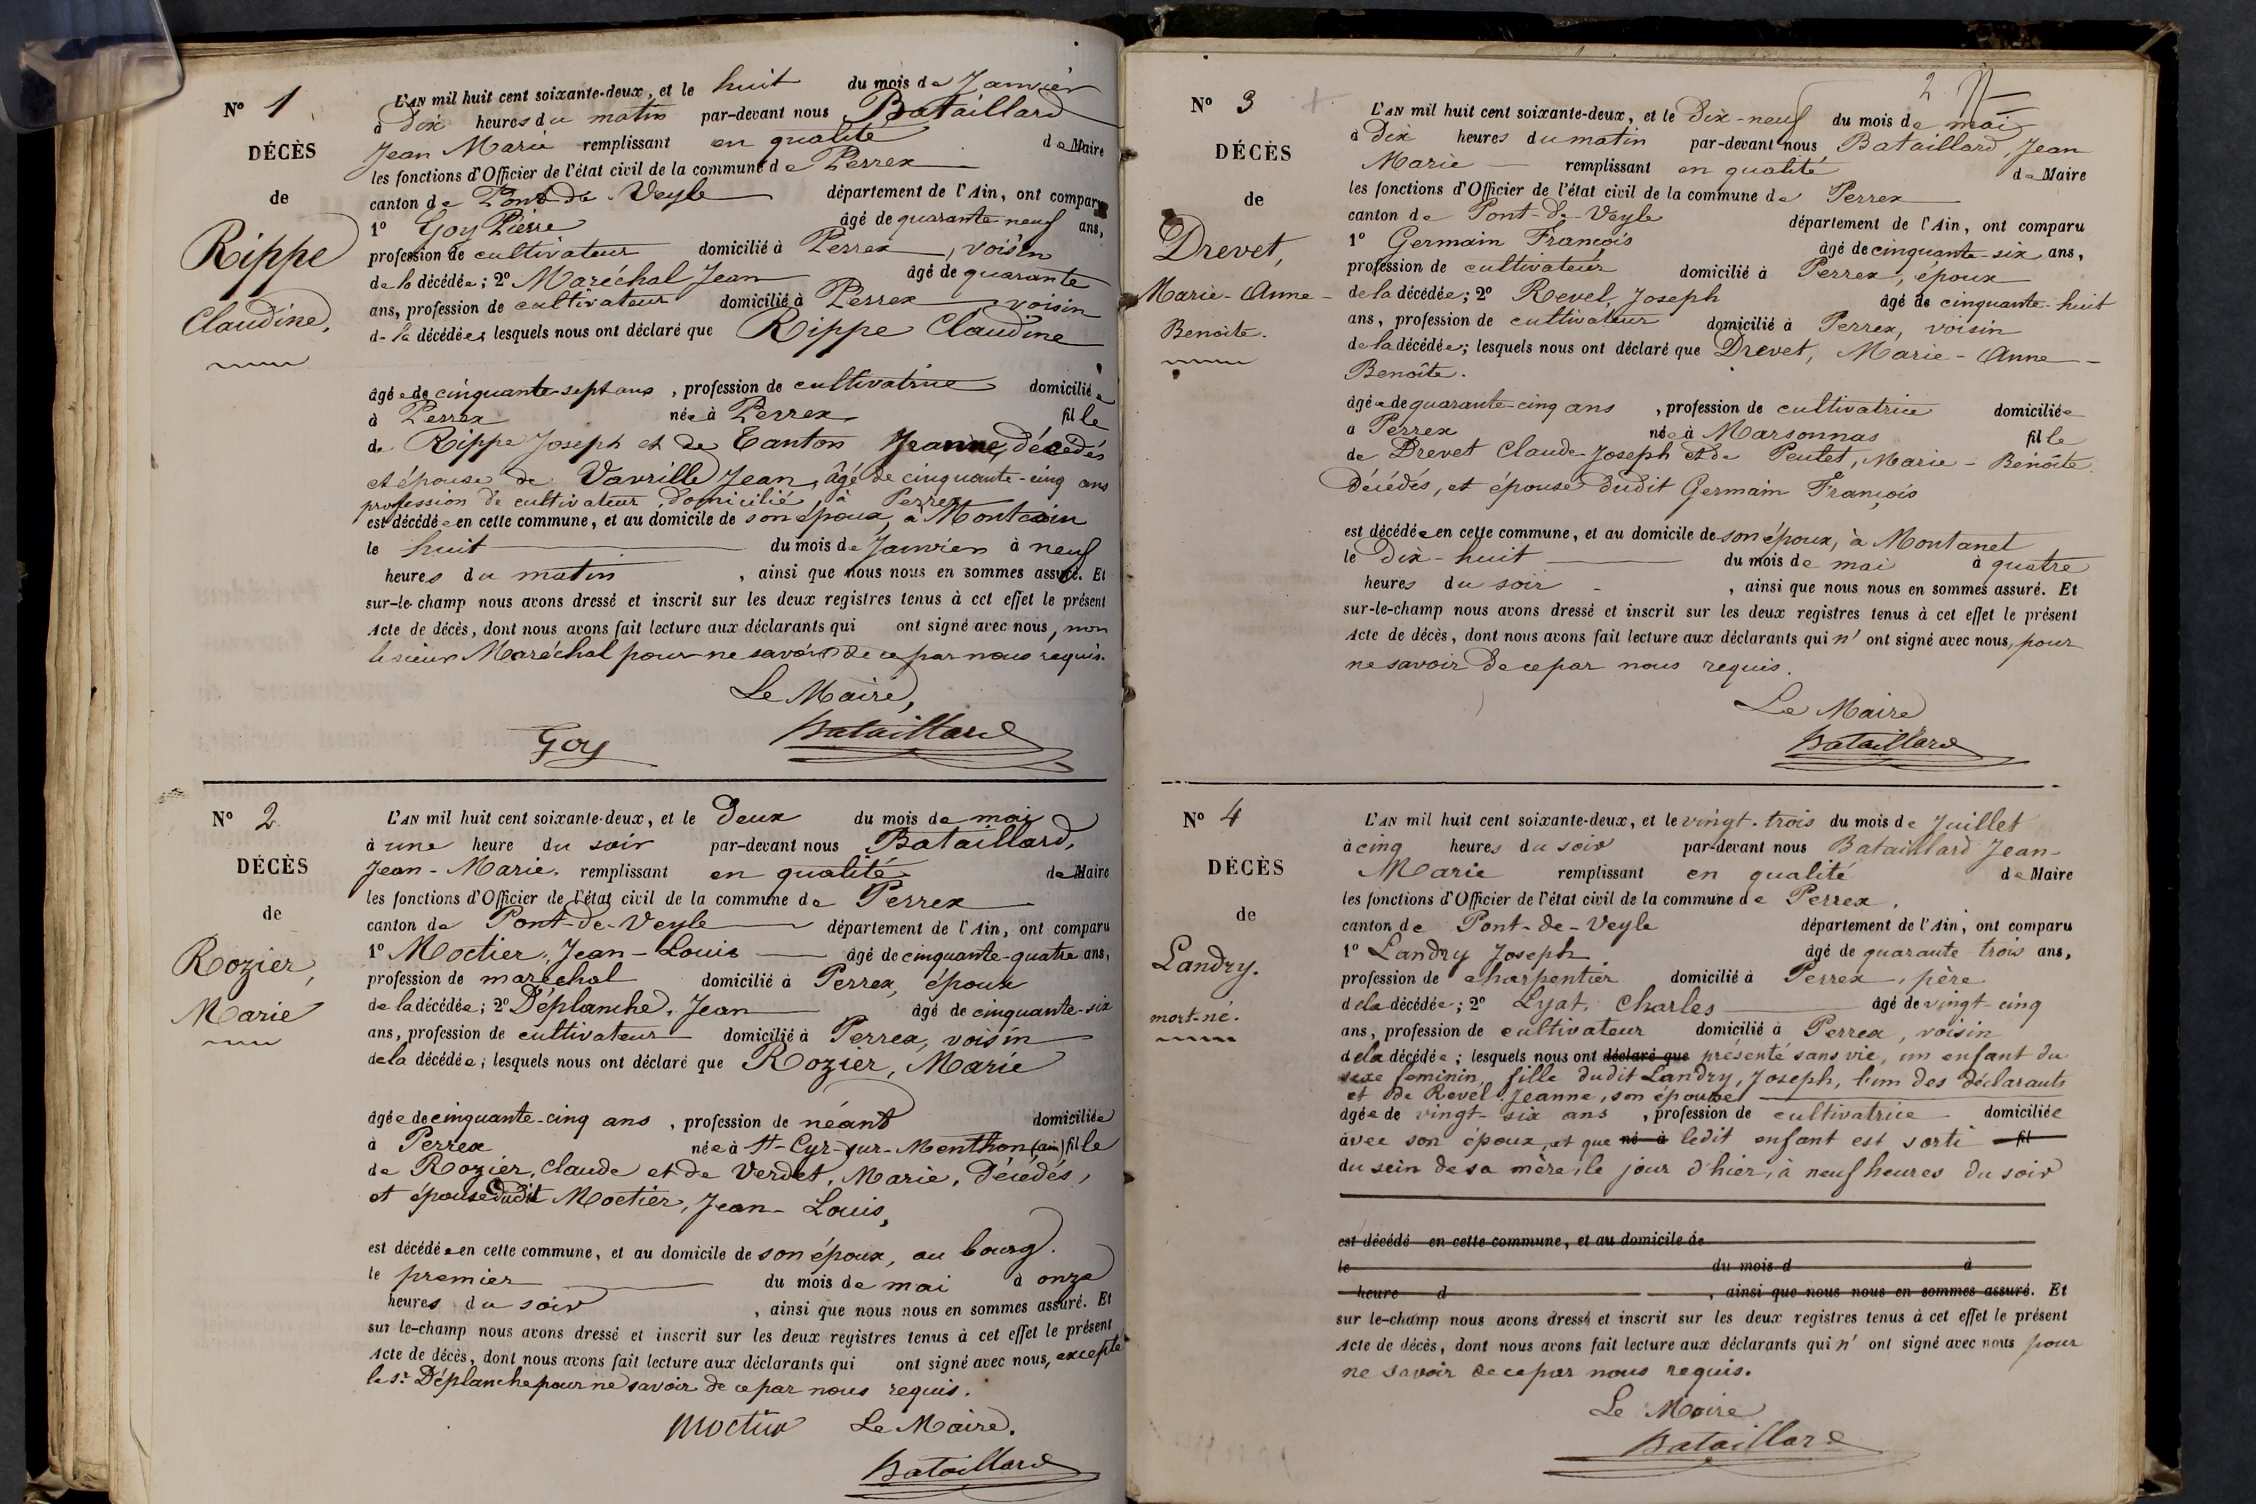 N° 1
DÉCÈS
de
Rippe
Claudine.
L'AN mil huit cent soixante-deux, et le huit du mois de Janvier
à dix heures du matin par-devant nous Bataillard
Jean Marie remplissant en qualité de Maire
les fonctions d'Officier de l'état civil de la commune de Perrex
canton de Pont-de-Veyle département de l'Ain, ont comparu
1° Goy Pierre âgé de quarante neuf ans,
profession de cultivateur domicilié à Perrex, voisin
de la décédée; 2° Maréchal Jean âgé de quarante
ans, profession de cultivateur domicilié à Perrex voisin
de la décédée; lesquels nous ont déclaré que Rippe Claudine
âgée de cinquante-sept ans, profession de cultivatrice domiciliée
à Perrex née à Perrex fille
de Rippe Joseph et de Tanton Jeanne, décédés
et épouse de Vavrille Jean, âgé de cinquante-cinq ans
profession de cultivateur, domicilié à Perrex
est décédée en cette commune, et au domicile de son époux, à Montcoin
le huit du mois de Janvier à neuf
heures du matin, ainsi que nous nous en sommes assuré. Et
sur-le-champ nous avons dressé et inscrit sur les deux registres tenus à cet effet le présent
Acte de décès, dont nous avons fait lecture aux déclarants qui ont signé avec nous, non
le sieur Maréchal pour ne savoir de ce par nous requis.
Le Maire,
Goy Bataillard
N° 2
DÉCÈS
de
Rozier,
Marie
L'AN mil huit cent soixante-deux, et le deux du mois de mai
à une heure du soir par-devant nous Bataillard,
Jean-Marie. remplissant en qualité de Maire
les fonctions d'Officier de l'état civil de la commune de Perrex
canton de Pont-de-Veyle département de l'Ain, ont comparu
1° Moctier, Jean-Louis âgé de cinquante-quatre ans,
profession de maréchal domicilié à Perrex, époux
de la décédée; 2° Déplanche, Jean âgé de cinquante-six
ans, profession de cultivateur domicilié à Perrex, voisin
de la décédée; lesquels nous ont déclaré que Rozier, Marie
âgée de cinquante-cinq ans, profession de néant domiciliée
à Perrex née à St-Cyr-sur-Menthon (ain) fille
de Rozier, Claude et de Verdet, Marie, décédés,
et épouse dudit Moctier, Jean-Louis,
est décédée en cette commune, et au domicile de son époux, au bourg.
le premier du mois de mai à onze
heures du soir, ainsi que nous nous en sommes assuré. Et
sur le-champ nous avons dressé et inscrit sur les deux registres tenus à cet effet le présent
Acte de décès, dont nous avons fait lecture aux déclarants qui ont signé avec nous, excepté
le sr Déplanche pour ne savoir de ce par nous requis.
Moctier Le Maire.
Bataillard
2
N° 3
DÉCÈS
de
Drevet,
Marie-Anne-
Benoite.
L'AN mil huit cent soixante-deux, et le dix-neuf du mois de mai
à dix heures du matin par-devant nous Bataillard, Jean
Marie remplissant en qualité de Maire
les fonctions d'Officier de l'état civil de la commune de Perrex
canton de Pont-de-Veyle département de l'Ain, ont comparu
1° Germain François âgé de cinquante-six ans,
profession de cultivateur domicilié à Perrex, époux
de la décédée; 2° Revel, Joseph âgé de cinquante-huit
ans, profession de cultivateur domicilié à Perrex, voisin
de la décédée; lesquels nous ont déclaré que Drevet, Marie-Anne-
Benoîte.
âgée de quarante-cinq ans, profession de cultivatrice domiciliée
à Perrex née à Marsonnas fille
de Drevet Claude-Joseph et de Peutet, Marie-Benoîte
décédés, et épouse dudit Germain François
est décédée en cette commune, et au domicile de son époux, à Montanet
le dix-huit du mois de mai à quatre
heures du soir, ainsi que nous nous en sommes assuré. Et
sur-le-champ nous avons dressé et inscrit sur les deux registres tenus à cet effet le présent
Acte de décès, dont nous avons fait lecture aux déclarants qui n'ont signé avec nous, pour
ne savoir de ce par nous requis.
Le Maire
Bataillard
N° 4
DÉCÈS
de
Landry.
mort-né.
L'AN mil huit cent soixante-deux, et le vingt-trois du mois de Juillet
à cinq heures du soir par-devant nous Bataillard Jean-
Marie remplissant en qualité de Maire
les fonctions d'Officier de l'état civil de la commune de Perrex,
canton de Pont-de-Veyle département de l'Ain, ont comparu
1° Landry Joseph âgé de quarante trois ans,
profession de charpentier domicilié à Perrex, père
de la décédée; 2° Lyat, Charles âgé de vingt cinq
ans, profession de cultivateur domicilié à Perrex, voisin
de la décédée; lesquels nous ont déclaré que présenté sans vie, un enfant du
sexe féminin, fille dudit Landry, Joseph, l'un des déclarants
et de Revel Jeanne, son épouse
âgée de vingt-six ans, profession de cultivatrice domiciliée
avec son époux, et que né à ledit enfant est sorti fil
du sein de sa mère, le jour d'hier, à neuf heures du soir
est décédé en cette commune, et au domicile de
le du mois d à
heure d, ainsi que nous nous en sommes assuré. Et
sur le-champ nous avons dressé et inscrit sur les deux registres tenus à cet effet le présent
Acte de décès, dont nous avons fait lecture aux déclarants qui n'ont signé avec nous pour
ne savoir de ce par nous requis.
Le Maire
Bataillard